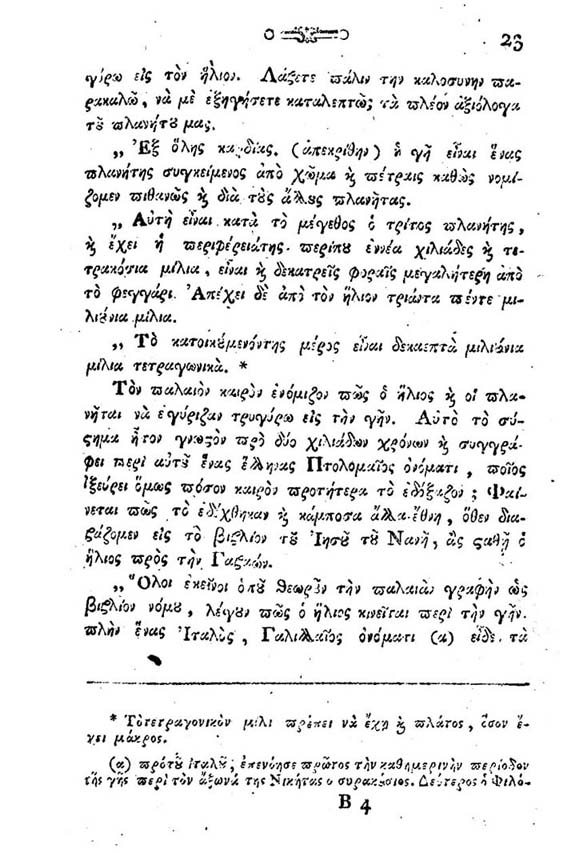 23
γύρω εἰς τὸν ἥλιον. Λάβετε πάλιν τὴν καλοσυνην πα-
ρακαλῶ, νὰ μὲ ἐξηγήσετε καταλεπτῶς τὰ πλέον ἀξιόλογα
τοῦ πλανήτου μας.
„ Ἐξ ὅλης καρδίας. (ἀπεκρίθην) ἡ γῆ εἶναι ἕνας
πλανήτης συγκείμενος ἀπὸ χῶμα ϗ πέτραις καθὼς νομί-
ζομεν πιθανῶς ϗ διὰ τοὺς ἄλλους πλανήτας.
„ Αὐτὴ εἶναι κατὰ τὸ μέγεθος ὁ τρίτος πλανήτης,
ϗ ἔχει ἡ περιφέρειάτης περίπου ἐννέα χιλιάδες ϗ τε-
τρακόσια μίλια, εἶναι ϗ δεκατρεῖς φοραῖς μεγαλήτερη ἀπὸ
τὸ φεγγάρι. Ἀπέχει δὲ ἀπὸ τὸν ἥλιον τριάντα πέντε μι-
λιούνια μίλια.
„ Τὸ κατοικούμενόντης μέρος εἶναι δεκαεπτὰ μιλιούνια
μίλια τετραγωνικὰ. *
Τὸν παλαιὸν καιρὸν ἐνόμιζον πῶς ὁ ἥλιος ϗ οἱ πλα-
νῆται νὰ ἐγύριζαν τρυγύρω εἰς τὴν γῆν. Αὐτὸ τὸ σύ-
ςημα ἦτον γνωςὸν πρὸ δύο χιλιάδων χρόνων ϗ συγγρά-
φει περὶ αὐτοῦ ἕνας ἕλληνας Πτολομαῖος ὀνόματι, ποῖος
ἰξεύρει ὅμως πόσον καιρὸν προτήτερα τὸ ἐδόξαζον; Φαί-
νεται πῶς τὸ ἐδέχθηκαν ϗ κάμποσα ἄλλα ἔθνη, ὅθεν δια-
βάζομεν εἰς τὸ βιβλίον τοῦ Ἰησοῦ τοῦ Ναυῆ, ἂς ςαθῇ ὁ
ἥλιος πρὸς τὴν Γαβαών.
„ Ὅλοι ἐκεῖνοι ὁποῦ θεωροῦν τὴν παλαιὰν γραφὴν ὡς
βιβλίον νόμου, λέγουν πῶς ὁ ἥλιος κινεῖται περὶ τὴν γῆν.
πλὴν ἕνας Ἰταλὸς, Γαλιλλαῖος ὀνόματι (α) εἶδε τὰ
* Τὸτετραγονικὸν μίλι πρέπει νὰ ἔχῃ ϗ πλάτος, ὅσον ἔ-
χει μάκρος.
(α) πρότοῦ ἰταλοῦ, ἐπενόησε πρῶτος τὴν καθημερινὴν περίοδον
τῆς γῆς περὶ τὸν ἄξωνά της Νικήτας ὁ συρακάσιος. Δεύτερος ὁ Φιλό-
B 4